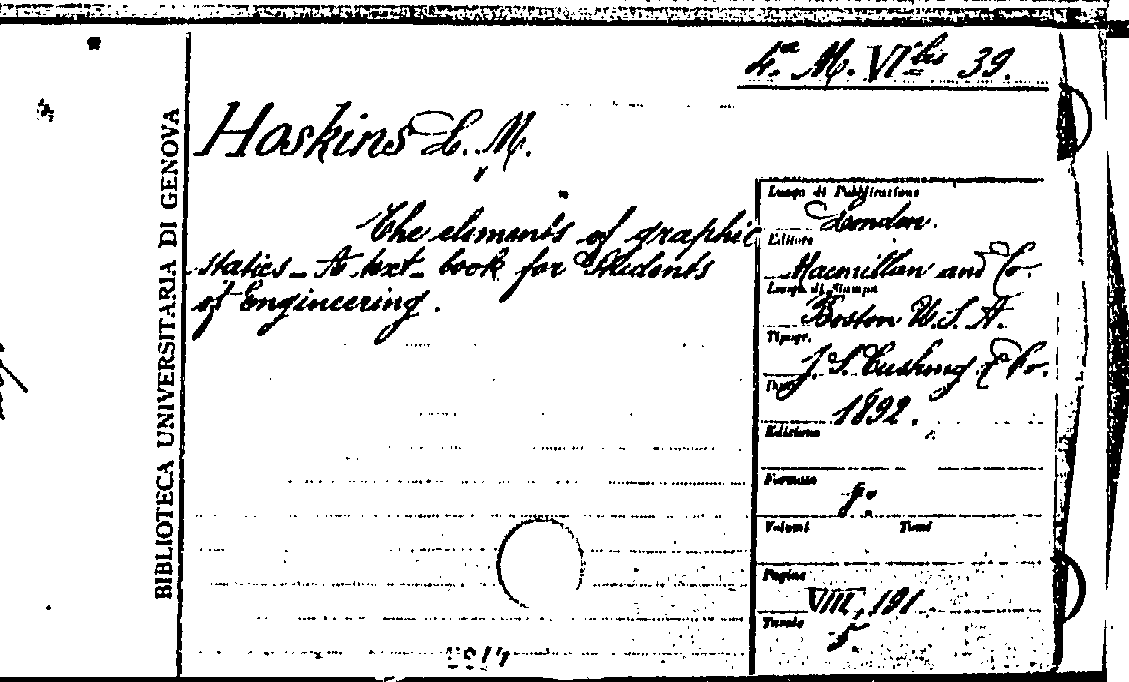 4.ª M. VI bis 39.
BIBLIOTECA UNIVERSITARIA DI GENOVA
Hoskins L. M.
The elements of graphic
statics _ A text _ book for Students
of Engineering.
Luogo di Pubblicazione
London.
Editore
Macmillan and Co.
Luogo di Stampa
Boston U.S.A.
Tipogr.
J. S. Cushing & Co.
Data
1892.
Edizione
Formato
8.°
Volumi Tomi
Pagine
VIII, 191
Tavole
5.